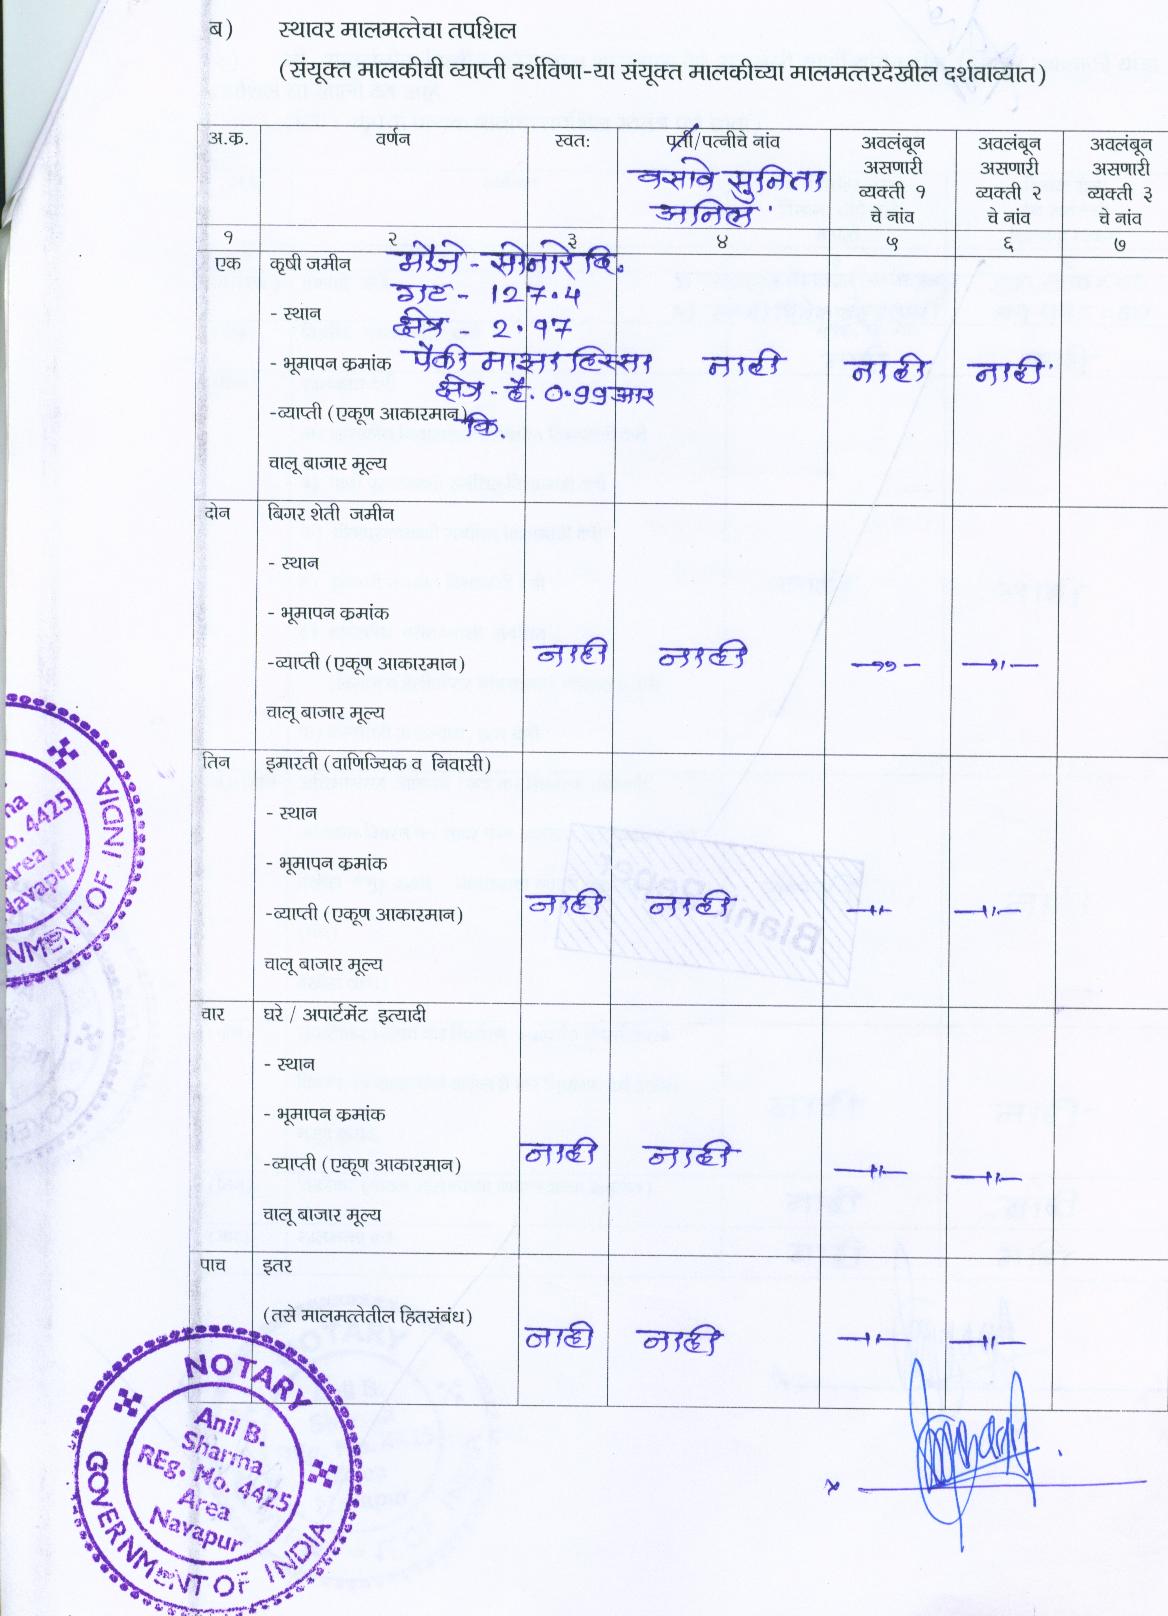 ब)	स्थावर मालमत्तेचा तपशिल
(संयूक्त मालकीची व्याप्ती दर्शविणा-या संयूक्त मालकीच्या मालमत्तरदेखील दर्शवाव्यात)
अ.क्र.	वर्णन	स्वतः	पती/पत्नीचे नांव	अवलंबून असणारी व्यक्ती १ चे नांव	अवलंबून असणारी व्यक्ती २ चे नांव	अवलंबून असणारी व्यक्ती ३ चे नांव
वसावे सुनिता
अनिल
१	२	३	४	५	६	७
एक	कृषी जमीन	मौजे - सोनारे दि.
गट - 127.4
- स्थान
क्षेत्र - 2.97
- भूमापन क्रमांक	पैकी माझा हिस्सा	नाही	नाही	नाही
क्षेत्र - हे. 0.99 आर
-व्याप्ती (एकूण आकारमान)
कि.
चालू बाजार मूल्य
दोन	बिगर शेती जमीन
- स्थान
- भूमापन क्रमांक
-व्याप्ती (एकूण आकारमान)	नाही	नाही	—"—	—"—
चालू बाजार मूल्य
तिन	इमारती (वाणिज्यिक व निवासी)
- स्थान
- भूमापन क्रमांक
-व्याप्ती (एकूण आकारमान)	नाही	नाही	—"—	—"—
चालू बाजार मूल्य
चार	घरे / अपार्टमेंट इत्यादी
- स्थान
- भूमापन क्रमांक
-व्याप्ती (एकूण आकारमान)	नाही	नाही	—"—	—"—
चालू बाजार मूल्य
पाच	इतर
(तसे मालमत्तेतील हितसंबंध)	नाही	नाही	—"—	—"—
No. 4425
Area
Navapur
GOVERNMENT OF INDIA
Blank Paper
NOTARY
Anil B.
Sharma
REg. No. 4425
Area
Navapur
GOVERNMENT OF INDIA